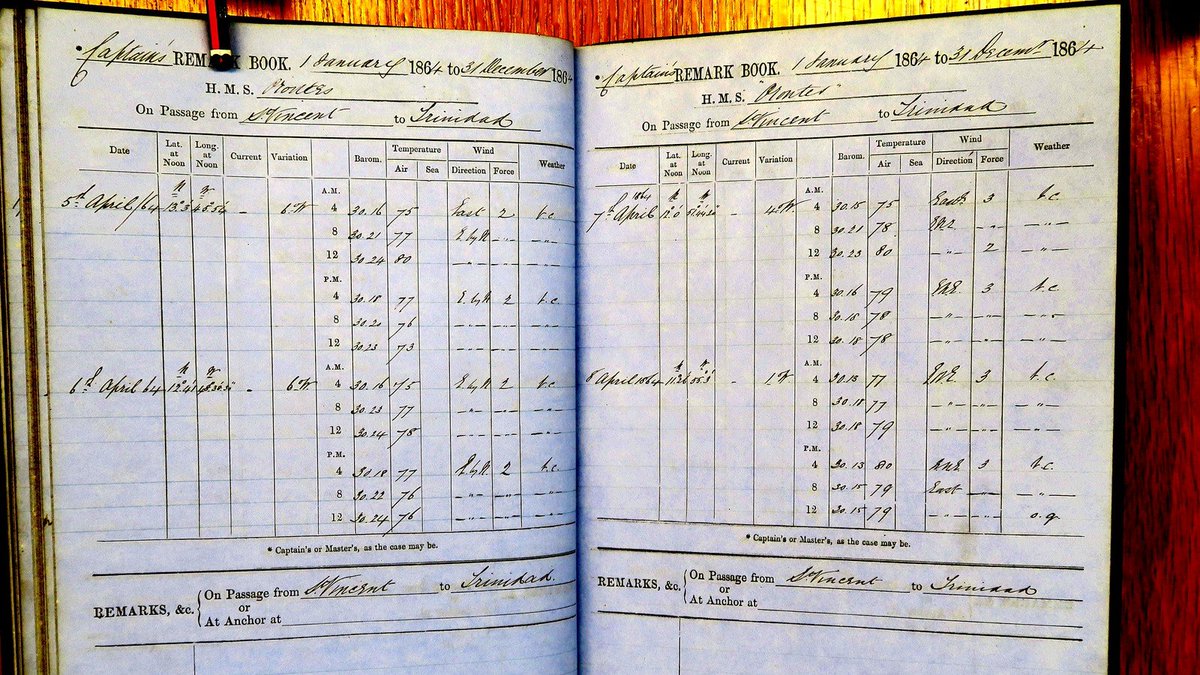 * Captain's REMARK BOOK. 1 January 1864 to 31 December 1864
H. M. S. Orontes
On Passage from St Vincent to Trinidad
Date Lat. at Noon Long. at Noon Current Variation Barom. Temperature Wind Weather
Air Sea Direction Force
N W A.M.
5th April/64 – 6 W 4 30.16 75 East 2 b.c.
8 30.21 77 E. by N. –„– –„–
12 30.24 80 –„– –„– –„–
P.M.
4 30.18 77 E. by N 2 b.c.
8 30.20 76 –„– –„– –„–
12 30.23 73 –„– –„– –„–
N W A.M.
6th April 64 – 6 W 4 30.16 75 E. by N 2 b.c.
8 30.23 77 –„– –„– –„–
12 30.24 78 –„– –„– –„–
P.M.
4 30.18 77 E. by N. 2 b.c.
8 30.22 76 –„– –„– –„–
12 30.24 76 –„– –„– –„–
* Captain's or Master's, as the case may be.
REMARKS, &c. On Passage from St Vincent to Trinidad.
or
At Anchor at
* Captain's REMARK BOOK. 1 January 1864 to 31 Decemr 1864
H. M. S. "Orontes"
On Passage from St Vincent to Trinidad
Date Lat. at Noon Long. at Noon Current Variation Barom. Temperature Wind Weather
Air Sea Direction Force
1864 N W A.M.
7th April – 4 W 4 30.15 75 East 3 b.c.
8 30.21 78 ENE –„– –„–
12 30.23 80 –„– 2 –„–
P.M.
4 30.16 79 ENE 3 b.c.
8 30.18 78 –„– –„– –„–
12 30.18 78 –„– –„– –„–
N W A.M.
8 April 1864 – 1 W 4 30.13 77 ENE 3 b.c.
8 30.18 77 –„– –„– –„–
12 30.18 79 –„– –„– –„–
P.M.
4 30.13 80 ENE 3 b.c.
8 30.15 79 East –„– –„–
12 30.15 79 –„– –„– o.q
* Captain's or Master's, as the case may be.
REMARKS, &c. On Passage from St Vincent to Trinidad
or
At Anchor at